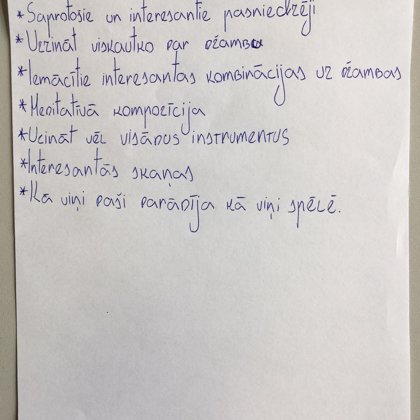 *Saprotošie un interesantie pasniedzēji
*Uzzināt viskautko par džambu
*Iemācītie interesantas kombinācijas uz džambas
*Meditatīvā kompozīcija
*Ucināt vēl visādus instrumentus
*Interesantās skaņas
*Kā viņi paši parādīja kā viņi spēlē.